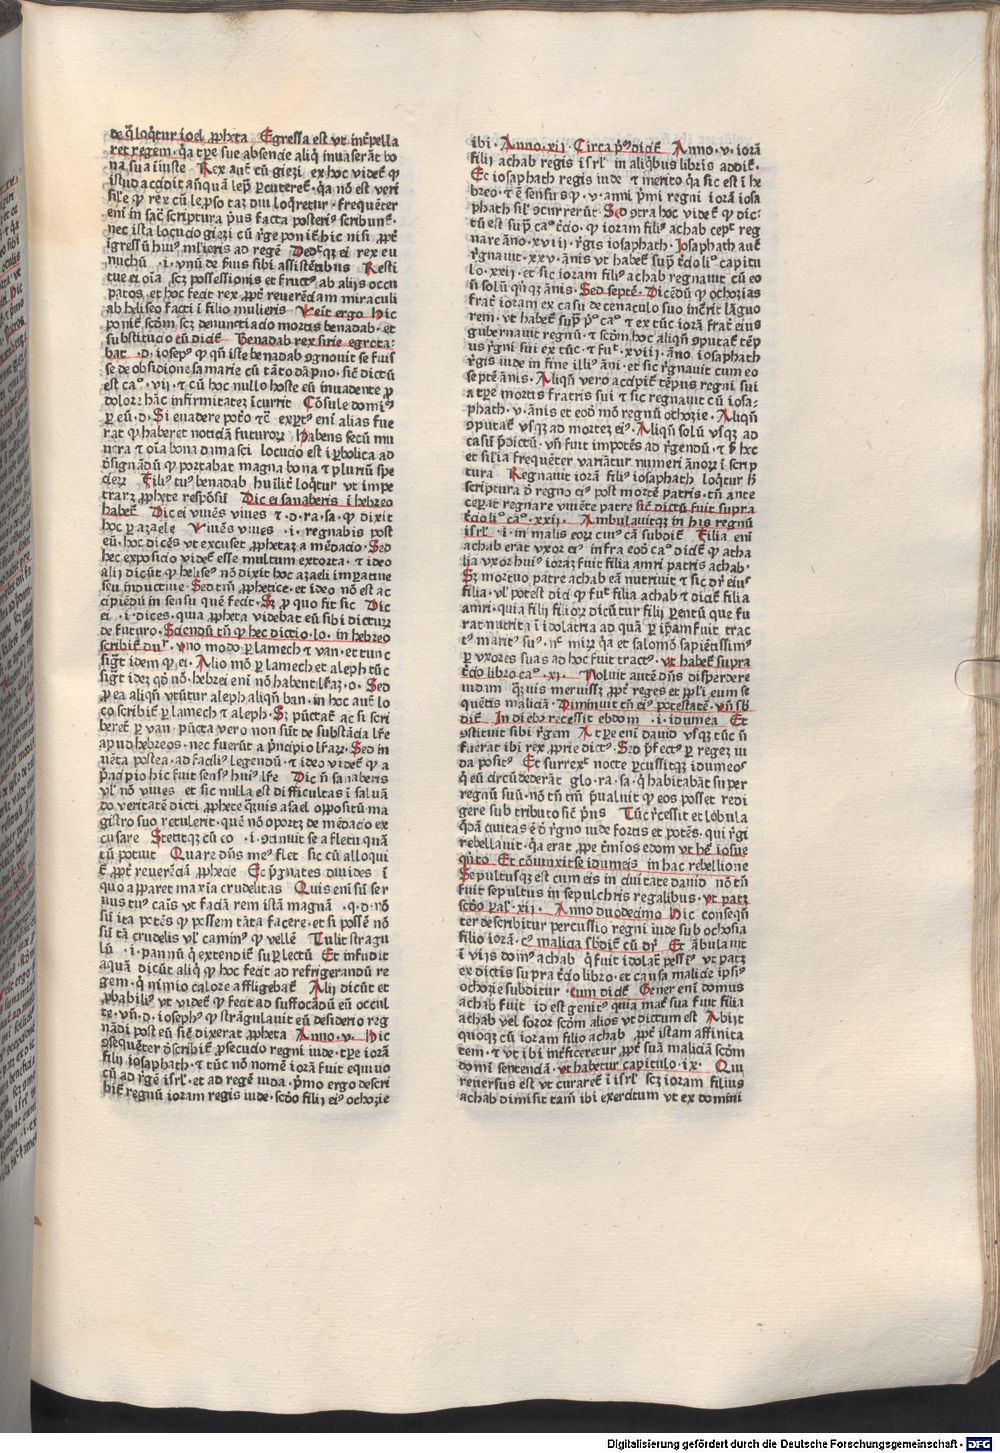 de q̄ loq̄tur ioel ꝓph̄ta Egressa est vt int̄pella
ret regem · q̄a tꝑe sue absencie aliq̄ inuaserāt bo
na sua iīuste Rex aut̄ cū giezi ex hoc videt̄ ꝙ
istud accidit anq̄ua lep̄ ꝑcuteret̄ · q̄a nō est veri
sil̄e ꝙ rex cū lep̄so taȝ diu loq̄retur · frequēter
eni in sac̄ scriptura p̄us facta posteri⁹ scribunt̄ ·
nec ista locucio giezi cū r̄ge ponit̄ hic nisi ꝓpt̄
īgressū hui⁹ ml̄ieris ad regē Dedit qȝ ei rex eu
nuchū · i · vnū de p̄us sibi assistētibus Resti
tue ei oīa scȝ possessionis et fruct⁹ ab alijs occu
patos · et hoc fecit rex ꝓpt̄ reuerēciam miraculi
ab heliseo facti i filio mulieris Ueit ergo Hic
ponit̄ scd̄m scȝ denunciacio mortis benadab · et
substitucio eū dicit̄ Benadab rex sirie egrota-
bat · d · iosep⁹ ꝙ qn̄ iste benadab ꝯgnouit se fuis
se de obsidione samarie cū tāto dāpno · sic̄ dictū
est cᵃ · vij · ⁊ cū hoc nullo hoste eū inuadente p̄
dolore hāc infirmitatez īcurrit Cōsule domī⁹
ꝑ eū · d · Si euadere poto ⁊c̄ exꝑt⁹ eni alias fue
rat ꝙ haberet noticiā futuroꝝ Habens secū mu
nera ⁊ oīa bona damasci locucio est iꝑbolica ad
d̄signādū ꝙ portabat magna bona ⁊ pluriū spe
cieꝝ Fili⁹ tu⁹ benadab huilit̄ loq̄tur vt impe
traret ꝓph̄ete respōsū Dic ei sanaberis ī hebreo
habet̄ Dic ei viuēs viues ⁊ · d · ra · sa · ꝙ dixit
hoc ꝑ azaele Viuēs viues · i · regnabis post
eū · hoc dicēs vt excuset ꝓph̄etaȝ a mēdacio · Sed
hec exposicio videt̄ esse multum extorta · ⁊ ideo
alij dicūt ꝙ helise⁹ nō dixit hoc azaeli imꝑatiue
seu inductiue · Sed tm̄ ꝓphetice · et ideo nō est ac
cipiēdū in sensu quē fecit · Sȝ ꝓ quo fit sic Dic
ei · i · dices · quia ꝓpheta videbat eū sibi dicturȝ
de futuro · Sciendū tn̄ ꝙ hec dictio · lo · in hebreo
scribit̄ dupl̄r · vno modo ꝑ lamech ⁊ van · et tunc
sig̅t idem ꝙ ei · Alio mō ꝑ lamech et aleph tūc
sig̅t idez qd̄ nō · hebrei eni nō habent lr̄aȝ · o · Sed
ꝑ ea aliqn̄ vtūtur aleph aliqn̄ ban · in hoc aut̄ lo
co scribit̄ ꝑ lamech ⁊ aleph · Sȝ pūctat̄ ac si scri
beret̄ ꝑ van · pūcta vero non sūt de substācia lr̄e
apud hebreos · nec fuerūt a p̄ncipio lr̄aꝝ · Sed in
uēta postea · ad facili⁹ legendū · ⁊ ideo videt̄ ꝙ a
p̄ncipio hic fuit sens⁹ hui⁹ lr̄e Dic n̄ sanaberis
vl̄ nō viues et sic nulla est difficultas ī saluā
do veritatē dicti ꝓph̄ete q̄zuis asael oppositū ma
gistro suo retulerit · quē nō oportȝ de mēdacio ex
cusare Stetit qȝ cū eo · i · ꝯtinuit se a fletu quā
tū potuit Quare dn̄s me⁹ flet sic cū alloqui
t̄ ꝓpt̄ reuerēciā ꝓph̄ecie Et p̄gnates diuides ī
quo apparet maxīa crudelitas Quis eni sū ser
uus tu⁹ caīs vt faciā rem istā magnā · q · d · nō
sū ita potēs ꝙ possem tāta facere · et si possē nō
sū tā crudelis vl̄ camin⁹ ꝙ vellē Tulit stragu
lū · i · pannū q̄ extendit̄ suꝑ lectū Et infudit
aquā dicūt aliq̄ ꝙ hoc fecit ad refrigerandū re
gem · q̄ nimio calore affligebat̄ Alij dicūt et
ꝓbabili⁹ vt videt̄ ꝙ fecit ad suffocādū eū occul
te · vn̄ · d · ioseph⁹ ꝙ strāgulauit eū desiderio reg
nādi post eū sic̄ dixerat ꝓph̄eta Anno · v · Hic
ꝯsequēter d̄scribit̄ ꝓsecucio regni iude · tꝑe iorā
filij iosaphath · ⁊ tūc nō nomē iorā fuit equiuo
cū ad r̄gē isrl̄ · et ad regē iuda · p̄mo ergo descri
bit̄ regnū ioram regis iude · scd̄o filij ei⁹ ochozie
ibi · Anno · xij · Circa p̄mū dicit̄ Anno · v · iorā
filij achab regis isrl̄ in aliq̄bus libris addit̄ ·
Et iosaphath regis iude ⁊ merito q̄a sic est ī he
breo · ⁊ ē sensus ꝙ · v · anni p̄mi regni iorā iosa
phath sil̄ ꝯcurrerūt · Sed ꝯtra hoc videt̄ ꝙ dic-
tū est sup̄ cᵃ t̄cio · ꝙ ioram fili⁹ achab cepit reg
nare āno · xvij · r̄gis iosaphath · Iosaphath aut̄
r̄gnauit · xxv · ānis vt habet̄ sup̄ t̄cio li⁰ capitu
lo · xxij · et sic ioram fili⁹ achab regnauit cū eo
n̄ solū qn̄qȝ ānis · Sed septē · Dicēdū ꝙ ochozias
frat̄ ioram ex casu de cenaculo suo īncīrit lāguo
rem · vt habet̄ sup̄ p̄⁰ cᵃ ⁊ ex tūc iorā frat̄ eius
gubernauit regnū · ⁊ scd̄m hoc aliqn̄ ꝯputat̄ tēp
us r̄gni sui ex tūc · ⁊ fuit · xvij · āno iosaphath
r̄gis iude in fine illi⁹ āni · et sic r̄gnauit cum eo
septē ānis · Aliqn̄ vero accipit̄ tēpus regni sui
a tꝑe mortis fratris sui ⁊ sic regnauit cū iosa-
phath · v · ānis et eod̄ mō regnū ochozie · Aliqn̄
ꝯputat̄ vsqȝ ad mortez ei⁹ · Aliqn̄ solū vsqȝ ad
casū p̄dictū · vn̄ fuit impotēs ad r̄gendū · ⁊ ꝑ hec
et sil̄ia frequēter variātur numeri ānorȝ ī scrip
tura Regnauit iorā fili⁹ iosaphath loq̄tur h̄
scriptura d̄ regno ei⁹ post mortē patris · tn̄ ante
ceꝑat regnare viuēte patre sic̄ dictū fuit supra
t̄cio li⁰ cᵃ · xxij · Ambulauit qȝ in his regnū
isrl̄ · i · in malis eoꝝ cui⁹ cā subdit̄ Filia eni
achab erat vxor ei⁹ infra eod̄ cᵃ dicit̄ ꝙ atha
lia vxor hui⁹ ioraȝ fuit filia amri patris achab ·
Sȝ mortuo patre achab eā nutriuit ⁊ sic dr̄ eius
filia · vl̄ potest dici ꝙ fuit filia achab ⁊ dicit̄ filia
amri · quia filij filioꝝ dicūtur filij ꝑentū que fu
rat nutrita ī idolatria ad quā ꝑ ip̄am fuit trac
t⁹ marit⁹ su⁹ · nec mirȝ q̄a et salomō sapiētissim⁹
ꝑ vxores suas ad hoc fuit tract⁹ · vt habet̄ supra
t̄cio libro cᵃ · xj · Noluit autē dn̄s disperdere
iudam q̄zuis meruissȝ ꝓpt̄ reges et ppl̄i eum se
quētis maliciā · Diminuit tn̄ ei⁹ potestatē · vn̄ sb̄
dit̄ In dieb⁹ recessit ebdom · i · idumea Et
ꝯstituit sibi r̄gem A tꝑe eni dauid vsqȝ tūc n̄
fuerat ibi rex ꝓprie dict⁹ · Sed p̄fect⁹ ꝑ regeȝ iu
da posit⁹ Et surrexit nocte ꝑcussitqȝ idumeos
q̄ eū circūdederāt glo · ra · sa · q̄ habitabāt super
regnū suū · nō tn̄ tm̄ p̄ualuit ꝙ eos posset redi
gere sub tributo sic̄ p̄us Tūc r̄cessit et lobula
q̄dā ciuitas ē d̄ r̄gno iude fortis et potēs · qui r̄gi
rebellauit · q̄a erat ꝓpe t̄minos edom vt het̄ iosue
qn̄to Et cōiunxit se idumeis in hac rebellione
Sepultusqȝ est cum eis in ciuitate dauid nō tn̄
fuit sepultus in sepulchris regalibus · vt patȝ
scd̄o paral̄ · xij · Anno duodecimo Hic conseqn̄
ter describitur percussio regni iude sub ochosia
filio iorā · cui⁹ malicia sb̄dit̄ cū dr̄ Et ābulauit
ī vijs dom⁹ achab q̄ fuit idolat̄ pessi⁹ vt patȝ
ex dictis supra t̄cio libro · et causa malicie ipsi⁹
ochozie subditur · cum dicit̄ Gener eni domus
achab fuit id est genit⁹ quia mat̄ sua fuit filia
achab vel soror scd̄m alios vt dictum est Abijt
quoqȝ cū ioram filio achab ꝓpt̄ istam affinita
tem · ⁊ vt ibi īnt̄ficeretur ꝓpt̄ suā maliciā scd̄m
domī sentenciā · vt habetur capitulo · ix · Qui
reuersus est vt curaret̄ ī isrl̄ scȝ ioram filius
achab dimisit tam̄ ibi exercitum vt ex domini
Digitalisierung gefördert durch die Deutsche Forschungsgemeinschaft - DFG